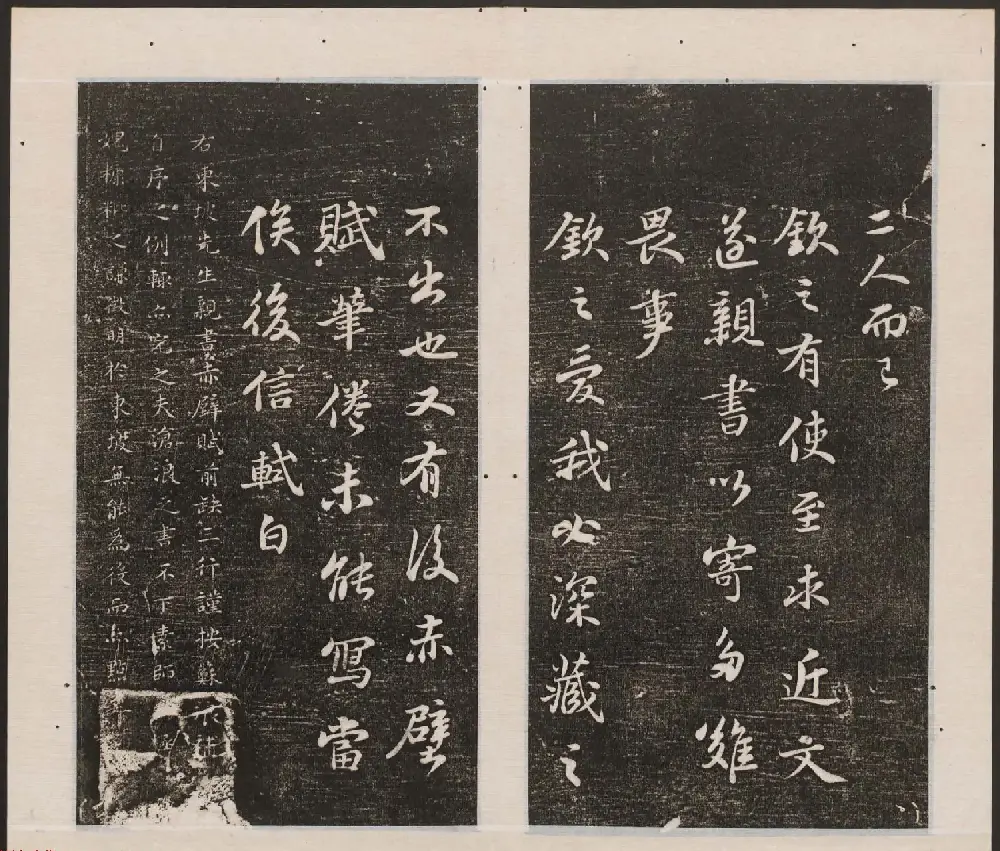 二人而已
欽之有使至求近文
遂親書以寄多難
畏事
欽之愛我必深藏之
不出也又有後赤壁
賦筆倦未能寫當
俟後信軾白
右東坡先生親書赤壁賦前缺三行謹按蘇
自序之例輒亦完之夫滄浪之書不下素師
愧糠粃之徵明於東坡無能為役而亦點